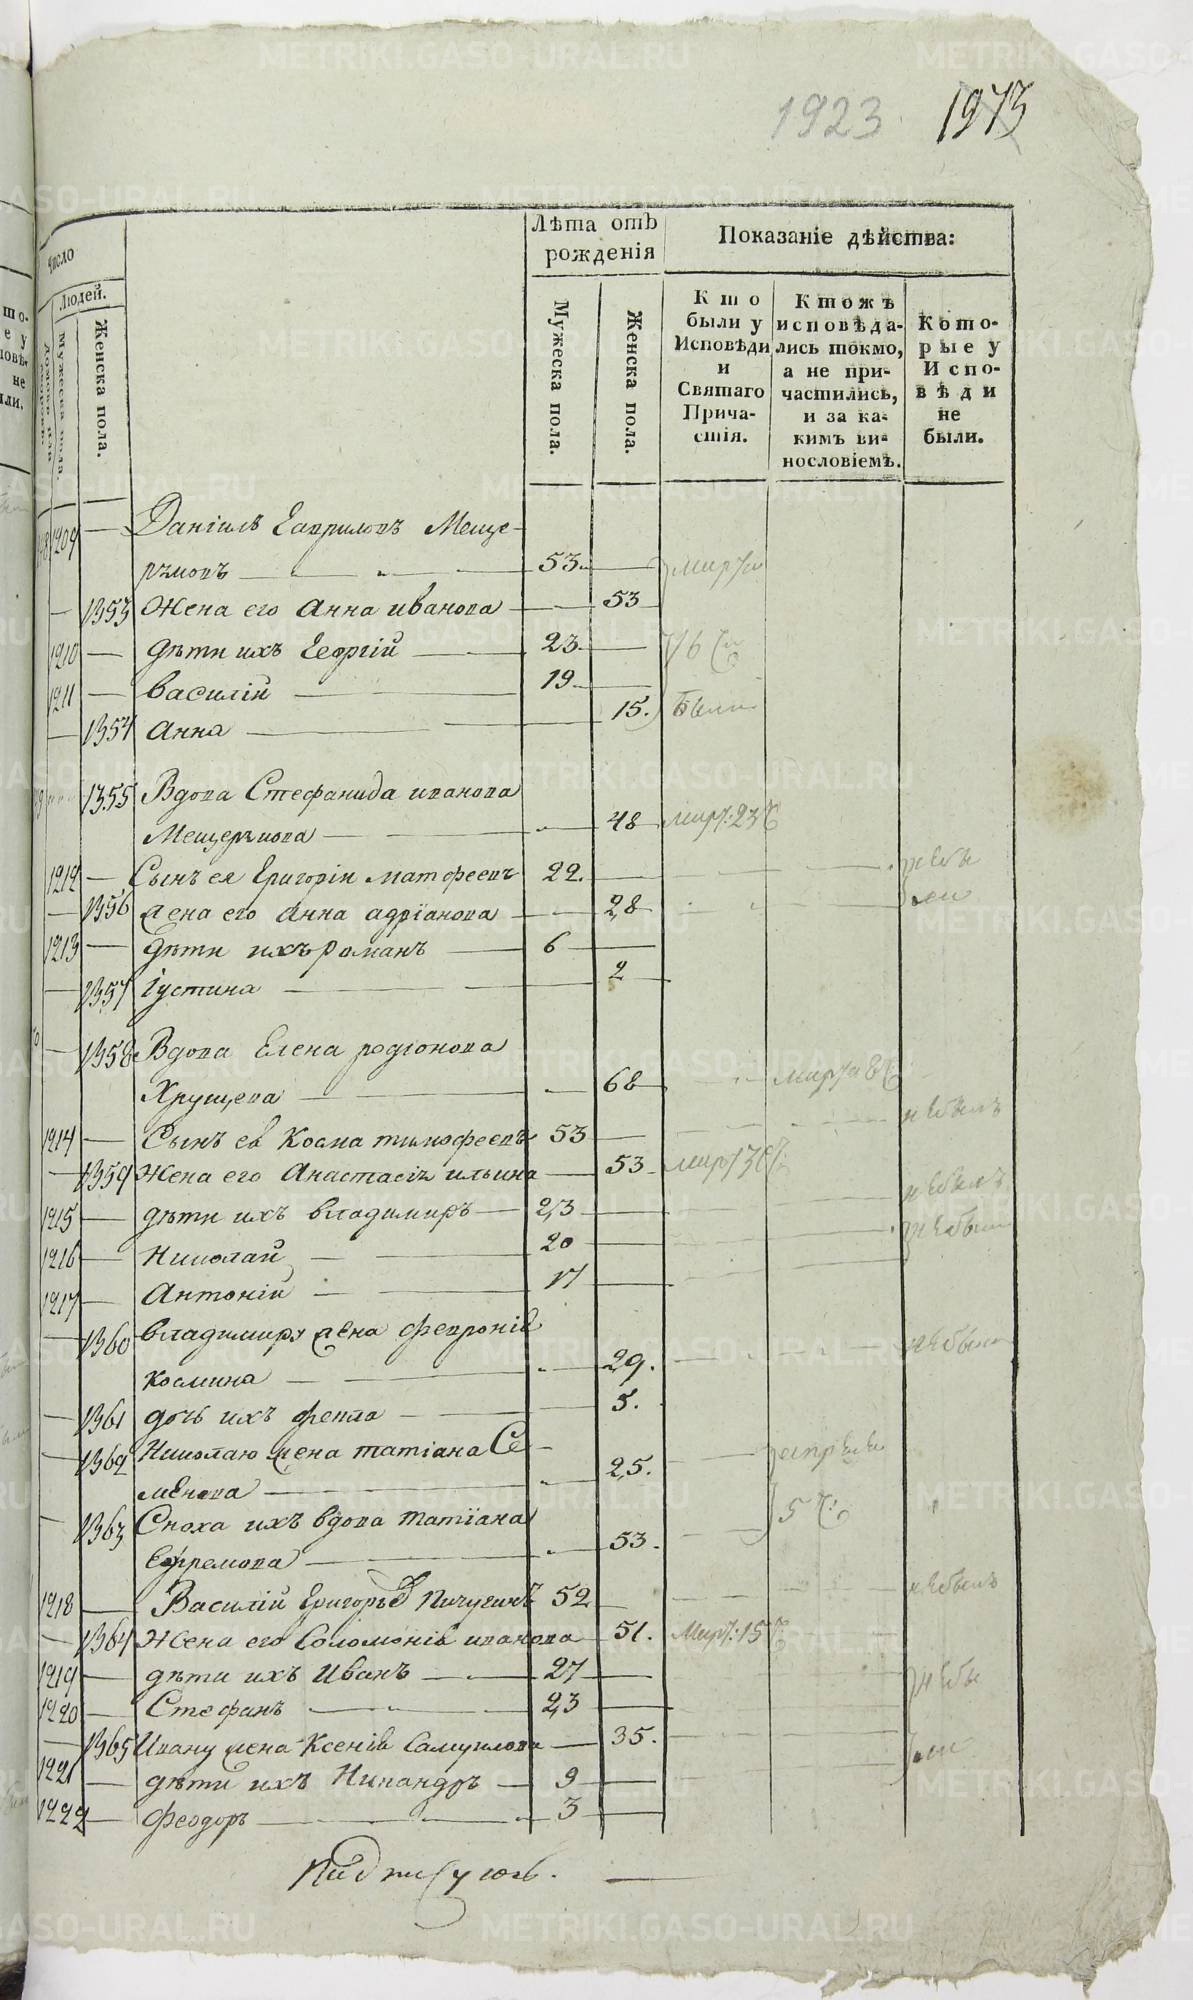 1923 1973
Число
Людей.
Женска пола.
Лѣта отъ рожденія
Мужеска пола.
Женска пола.
Показаніе дѣйства:
Кто были у Исповѣди и Святаго Причастія.
Ктожъ исповѣдались токмо, а не причастились, и за какимъ винословіемъ.
Которые у Исповѣди не были.
1209 — Даніилъ Гавриловъ Меще-
ряковъ — 53. —
— 1353 Жена его Анна иванова — 53
1210 — дѣти ихъ Георгій — 23. —
1211 — василій — 19. —
— 1354 Анна — 15. были
1355 Вдова Стефанида иванова
Мещерякова — 48 мар: 23
1212 — Сынъ ея Григорій матфеевъ 22. — небы
— 1356 жена его анна адріанова — 28 ли
1213 — дѣти ихъ романъ — 6 —
— 1357 Густина — 2
— 1358 Вдова Елена родіонова
Хрущева — 68 — марта 8
1214 — Сынъ ея Косма тимофеевъ 53 — небылъ
— 1359 Жена его Анастасія ильина — 53
1215 — дѣти ихъ владимиръ — 23 — небылъ
1216 — Николай — 20 — небыли
1217 — Антоній — 17 —
— 1360 владимиру жена феѵронія
Космина — 29. — небыла
— 1361 дочь ихъ фекла — 5.
— 1362 Николаю жена татіана Се-
менова — 25. — апрѣля
— 1363 Сноха ихъ вдова татіана 5
Ефремова — 53. —
1218 — Василій Григорьевъ Пичугинъ 52 — небылъ
— 1364 Жена его Соломонія иванова — 51. Мар: 15
1219 — дѣти ихъ Иванъ — 27 — небы
1220 — Стефанъ — 23 —
— 1365 Ивану жена Ксенія Самуилова — 35. — ли
1221 — дѣти ихъ Никандръ — 9 —
1222 — феодоръ — 3 —